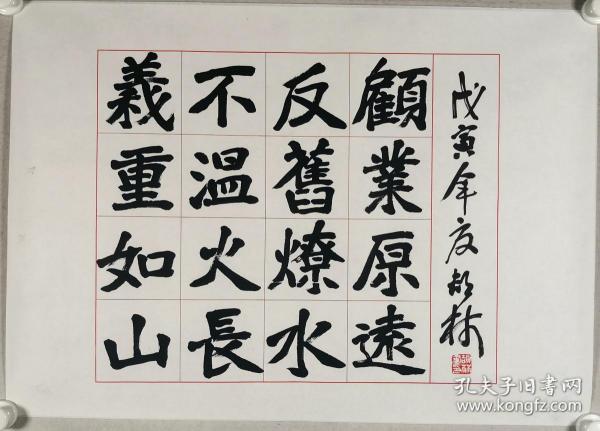 義不反顧
重温舊業
如火燎原
山長水遠
戊寅年
孔夫子旧书网
www.kongfz.com